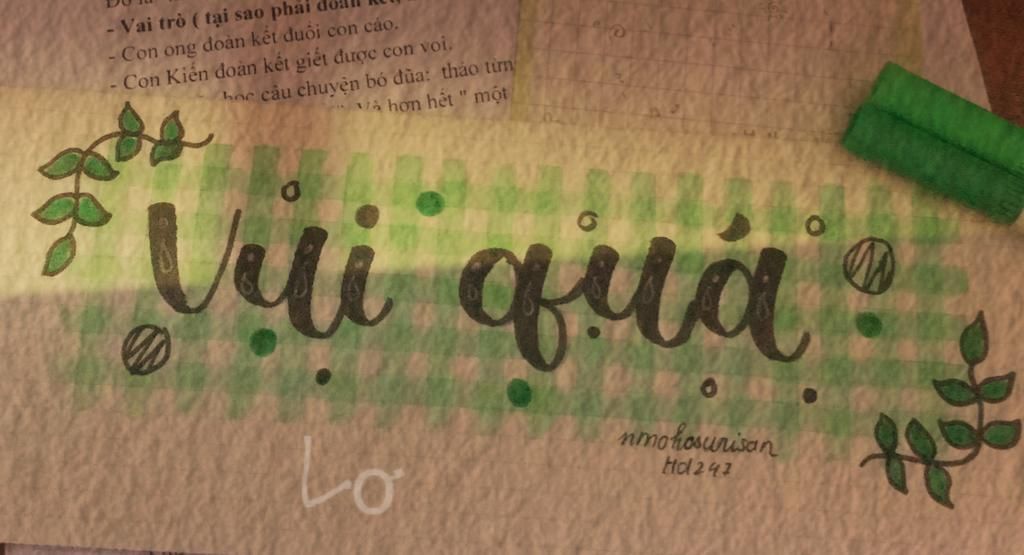 - Vai trò ( tại sao phải đoàn kết,
- Con ong đoàn kết đuổi con cáo.
- Con Kiến đoàn kết giết được con voi.
học câu chuyện bó đũa: tháo từng
Và hơn hết " một
Vui quá
nmohosurisan
Hd247
Lo